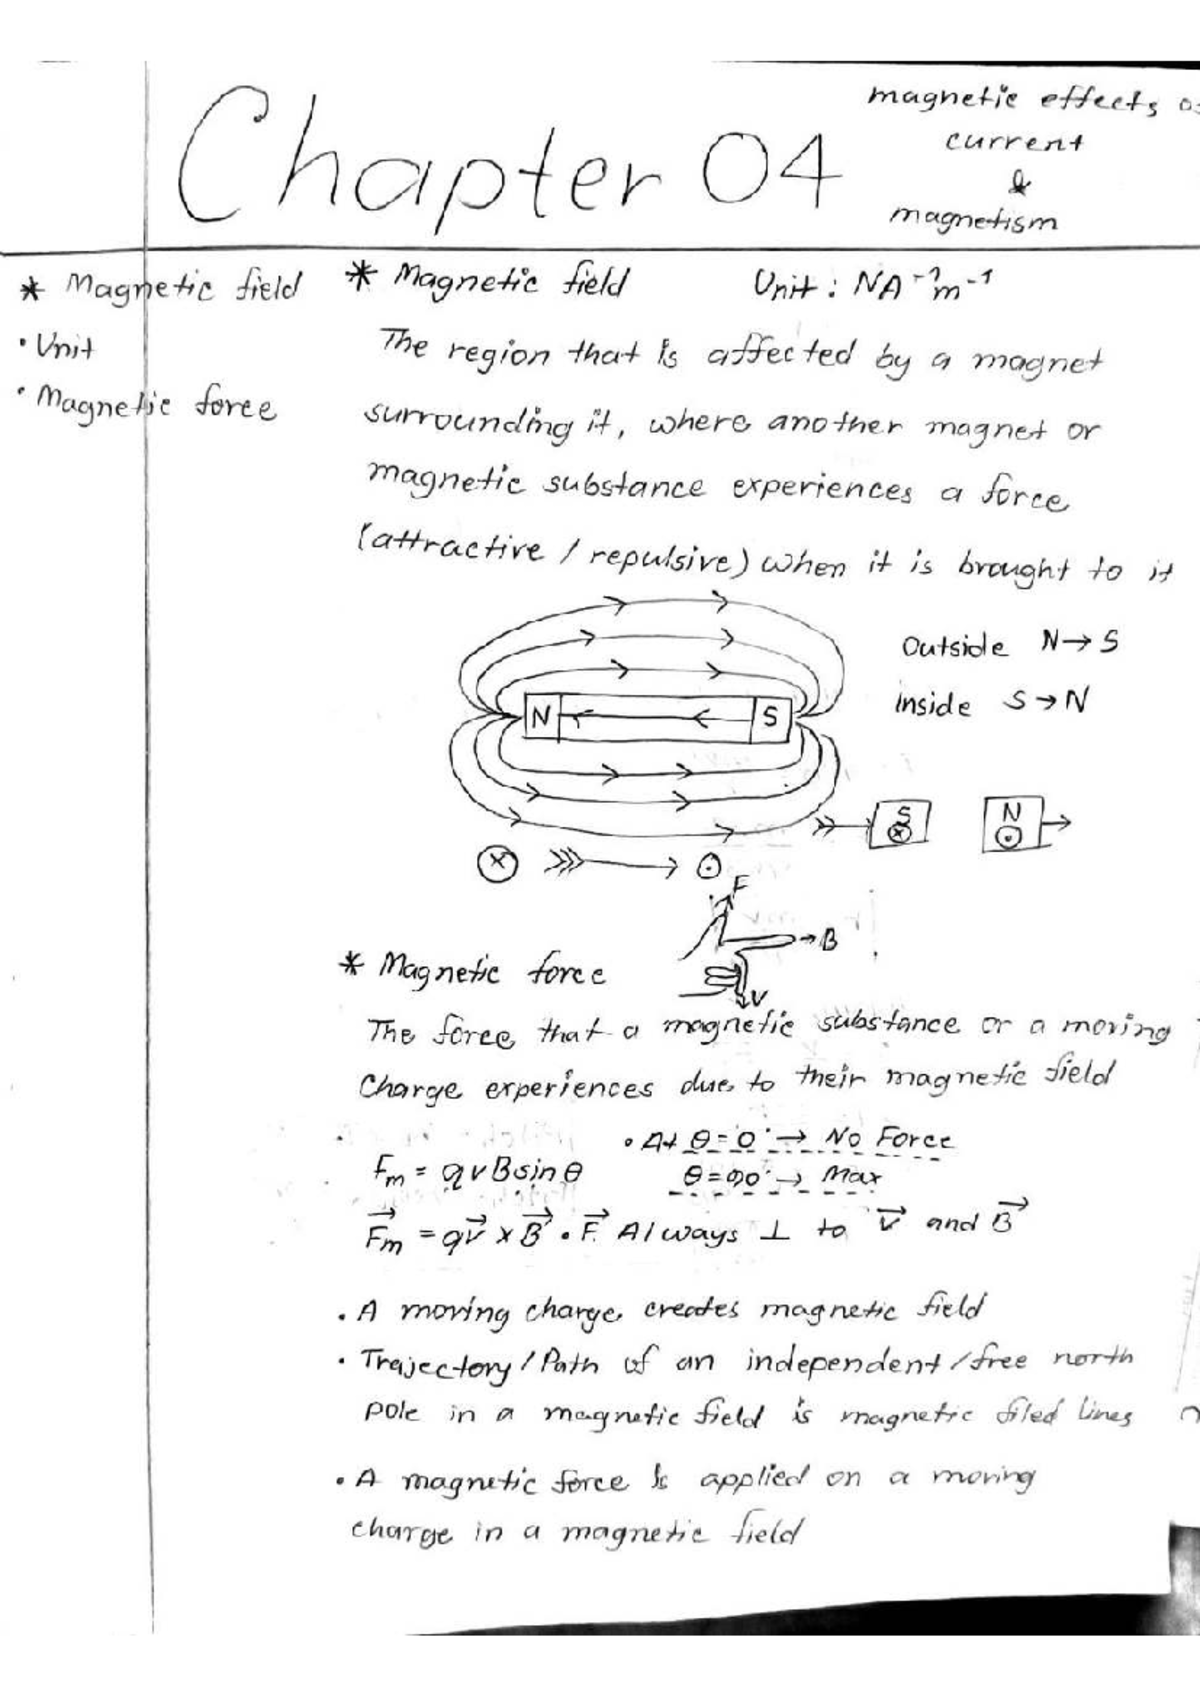 Chapter 04
magnetic effects of
current
&
magnetism
* Magnetic field
• Unit
• Magnetic force
* Magnetic field Unit : NA⁻¹m⁻¹
The region that is affected by a magnet
surrounding it, where another magnet or
magnetic substance experiences a force
(attractive / repulsive) when it is brought to it
Outside N→S
inside S→N
N S
S
N
F
B
V
* Magnetic force
The force that a magnetic substance or a moving
Charge experiences due to their magnetic field
• At θ = 0° → No Force
Fm = qvBsinθ θ = 90° → Max
F⃗m = qv⃗ × B⃗ • F⃗ Always ⊥ to v⃗ and B⃗
• A moving charge creates magnetic field
• Trajectory / Path of an independent / free north
pole in a magnetic field is magnetic filed lines
• A magnetic force is applied on a moving
charge in a magnetic field